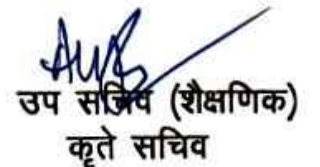 उप सचिव (शैक्षणिक)
कृते सचिव